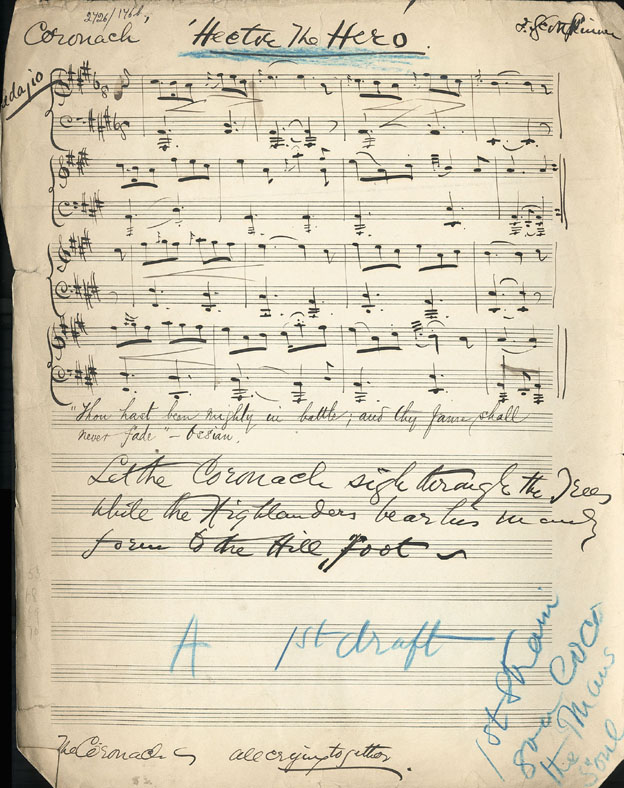 2726/1766,
Coronach 'Hector The Hero J. Scott Skinner
Adajio
"Thou hast been mighty in battle; and thy fame shall
never fade" – Ossian.
Let the Coronach sigh through the Trees
while the Highlanders bear his manly
form to the Hill, foot
A 1st draft
1st Strain
8va
the Mans
Soul
The Coronach all crying together